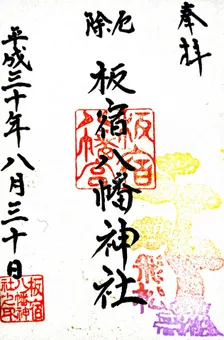 奉拝
厄除
板宿八幡神社
板宿八幡宮
平成三十年八月三十日
板宿八幡神社之印